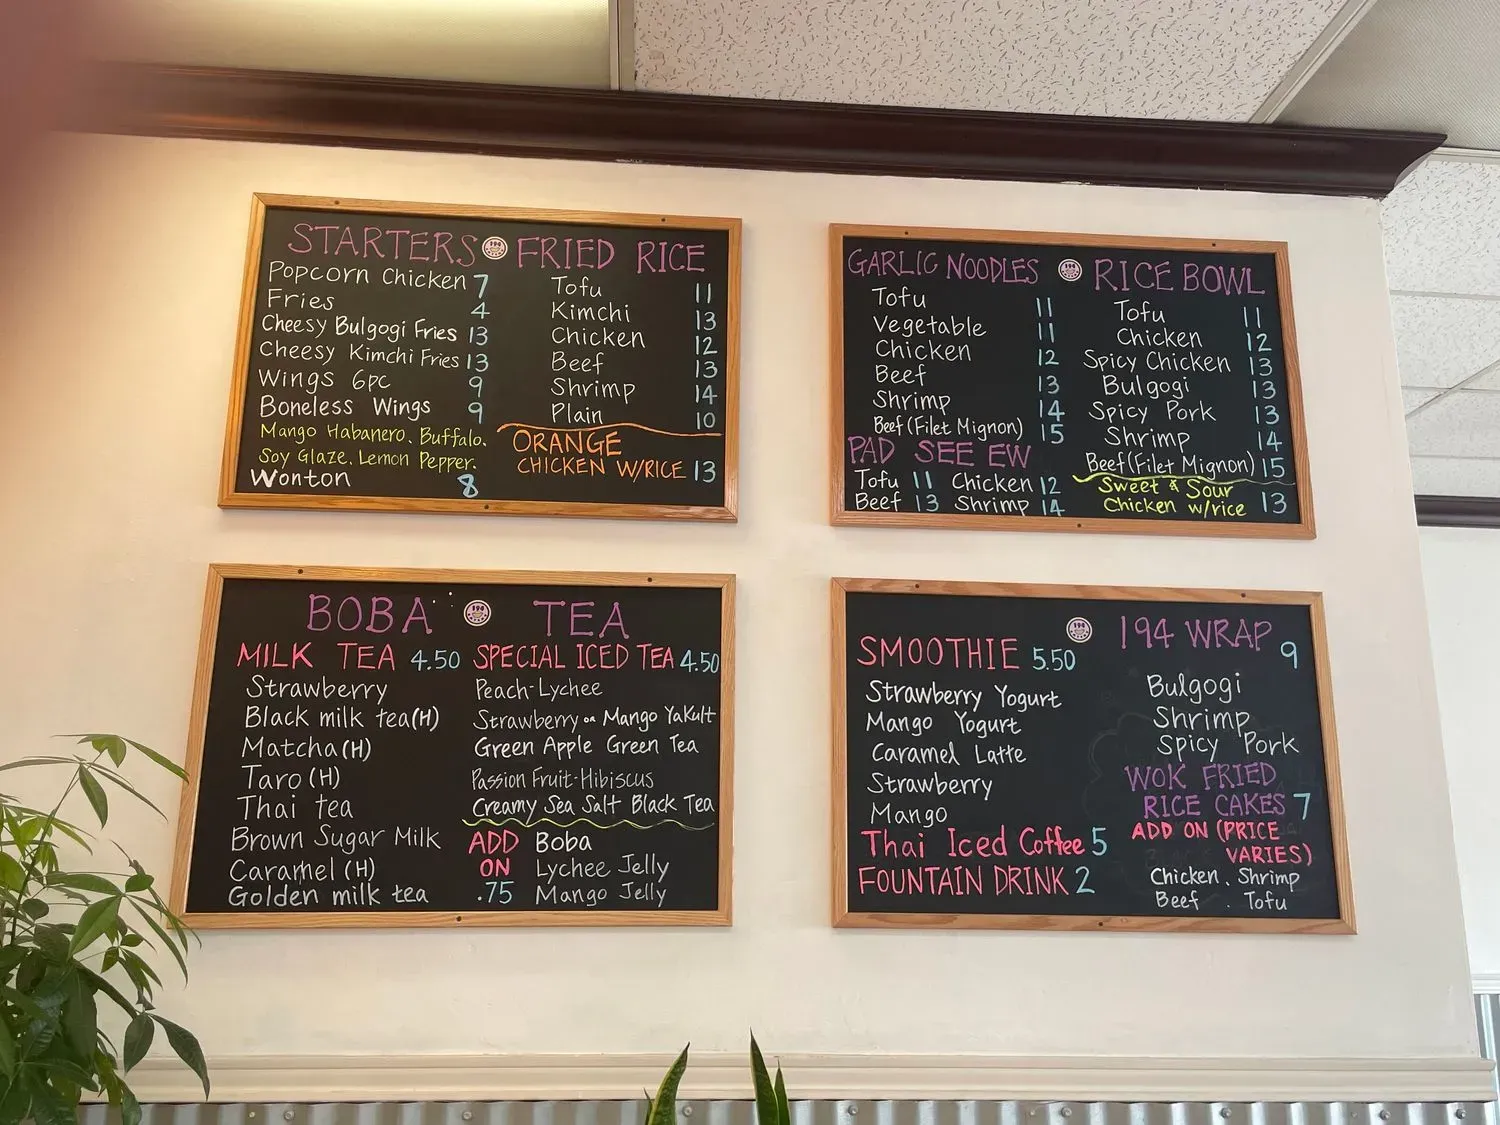 STARTERS
Popcorn Chicken 7
Fries 4
Cheesy Bulgogi Fries 13
Cheesy Kimchi Fries 13
Wings 6pc 9
Boneless Wings 9
Mango Habanero. Buffalo.
Soy Glaze. Lemon Pepper.
Wonton 8
FRIED RICE
Tofu 11
Kimchi 13
Chicken 12
Beef 13
Shrimp 14
Plain 10
ORANGE
CHICKEN W/RICE 13
GARLIC NOODLES
Tofu 11
Vegetable 11
Chicken 12
Beef 13
Shrimp 14
Beef (Filet Mignon) 15
PAD SEE EW
Tofu 11 Chicken 12
Beef 13 Shrimp 14
RICE BOWL
Tofu 11
Chicken 12
Spicy Chicken 13
Bulgogi 13
Spicy Pork 13
Shrimp 14
Beef (Filet Mignon) 15
Sweet & Sour
Chicken w/rice 13
BOBA TEA
MILK TEA 4.50
Strawberry
Black milk tea (H)
Matcha (H)
Taro (H)
Thai tea
Brown Sugar Milk
Caramel (H)
Golden milk tea
SPECIAL ICED TEA 4.50
Peach-Lychee
Strawberry or Mango Yakult
Green Apple Green Tea
Passion Fruit-Hibiscus
Creamy Sea Salt Black Tea
ADD ON .75
Boba
Lychee Jelly
Mango Jelly
SMOOTHIE 5.50
Strawberry Yogurt
Mango Yogurt
Caramel Latte
Strawberry
Mango
Thai Iced Coffee 5
FOUNTAIN DRINK 2
194 WRAP 9
Bulgogi
Shrimp
Spicy Pork
WOK FRIED
RICE CAKES 7
ADD ON (PRICE
VARIES)
Chicken . Shrimp
Beef . Tofu